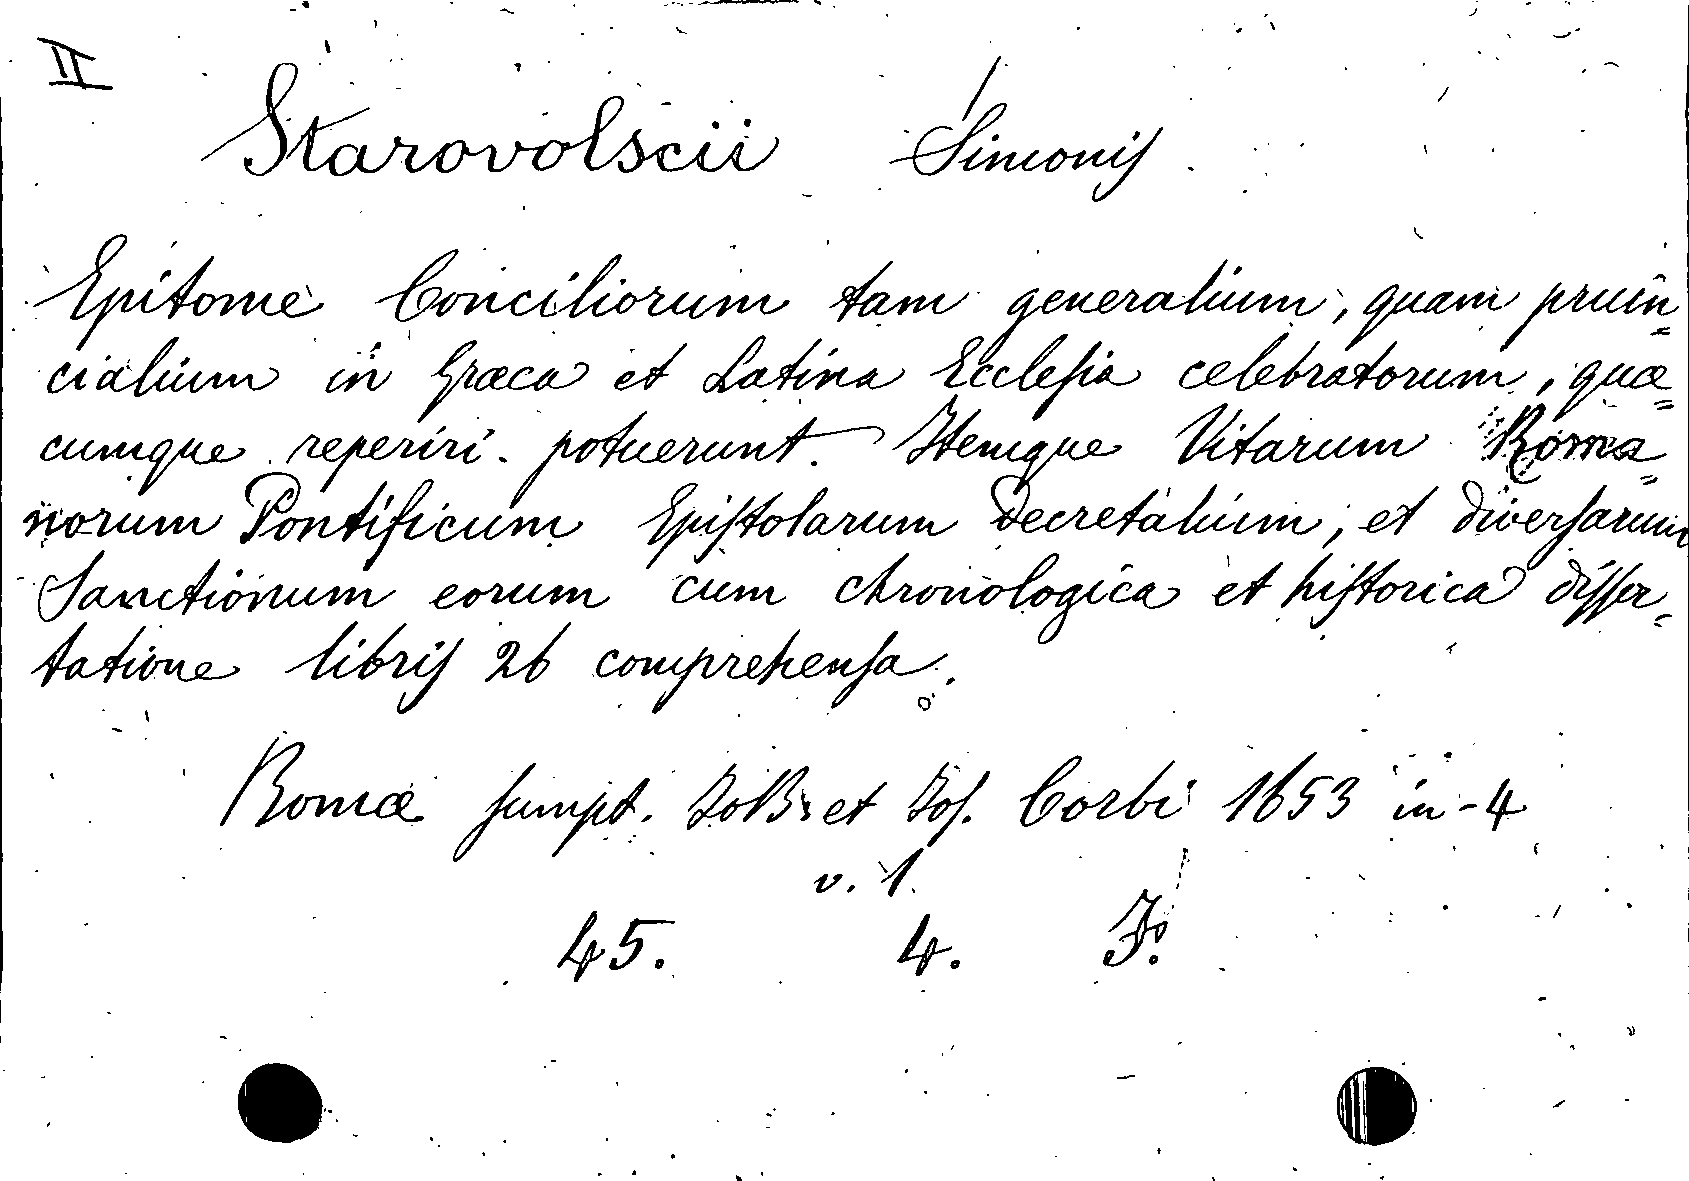 II
Starovolscii Simonis
Epitome Conciliorum tam generalium, quam pruin=
cialium in Græca et Latina Ecclesia celebratorum, quæ=
cumque reperiri potuerunt. Itemque Vitarum Roma=
norum Pontificum Epistolarum Decretalium, et diversarum
Sanctionum eorum cum chronologica et historica disser=
tatione libris 26 comprehensa.
Romæ sumpt. et Jos. Corbi 1653 in-4
v. 1.
45. 4. J.